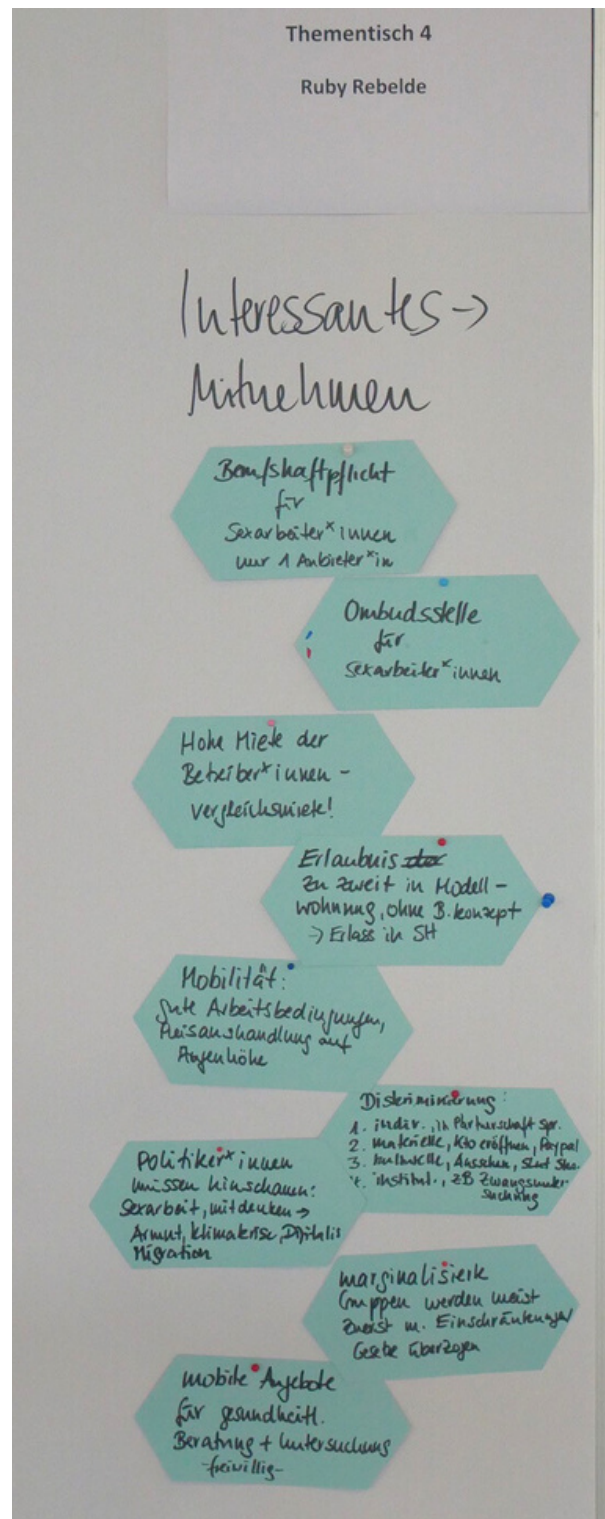 Thementisch 4
Ruby Rebelde
Interessantes →
Mitnehmen
Berufshaftpflicht
für
Sexarbeiter*innen
nur 1 Anbieter*in
Ombudsstelle
für
Sexarbeiter*innen
Hohe Miete der
Betreiber*innen -
vergleichsmiete!
Erlaubnis
zu zweit in Modell -
wohnung, ohne B.konzept
→ Erlass in SH
Mobilität:
gute Arbeitsbedingungen,
Preisaushandlung auf
Augenhöhe
Diskriminierung:
1. indiv., in Partnerschaft spr.
2. materielle, Kto eröffnen, Paypal
3. kulturelle, Aussehen, Slut Sha.
4. institut., zB Zwangsunter
suchung
Politiker*innen
müssen hinschauen:
Sexarbeit, mitdenken →
Armut, Klimakrise, Digitalis
Migration
marginalisierte
Gruppen werden meist
zuerst m. Einschränkungen/
Gesetze überzogen
mobile Angebote
für gesundheitl.
Beratung + Untersuchung
-freiwillig-